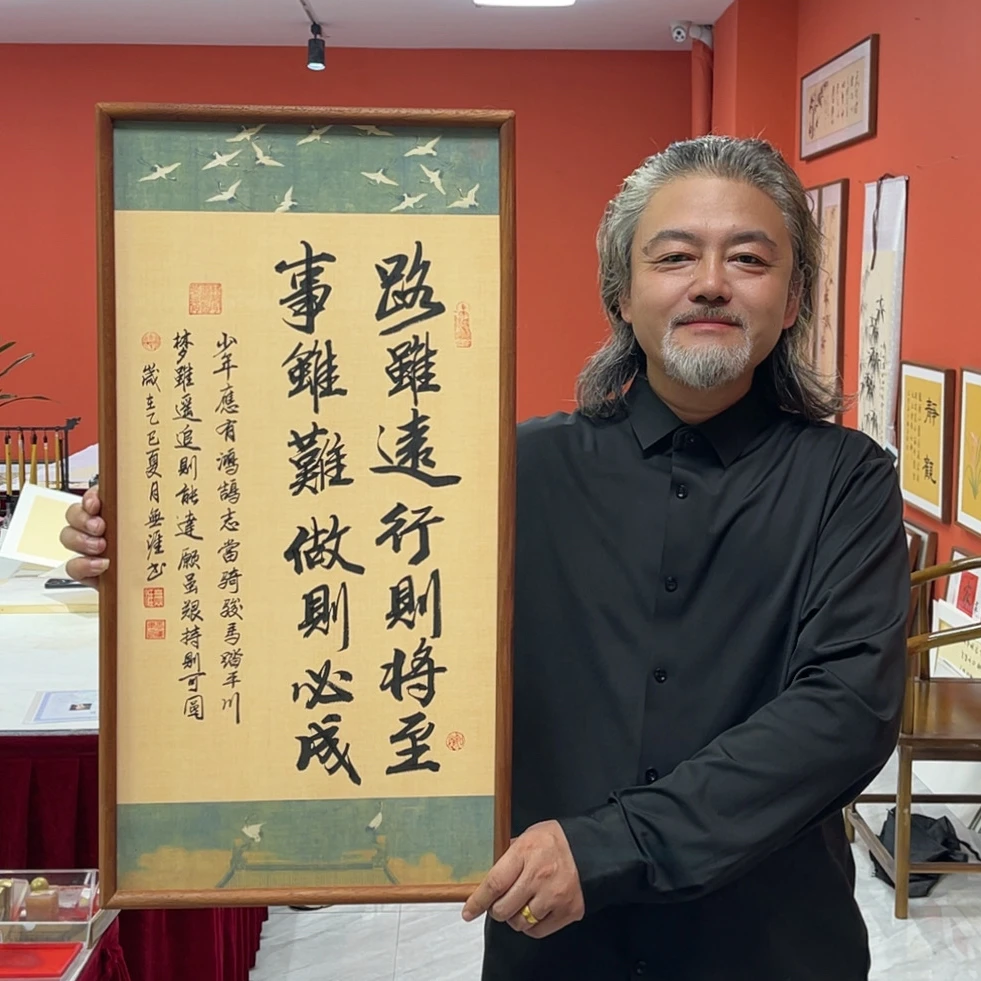 路雖遠行則將至
事雖難做則必成
少年應有鴻鵠志當骑駿馬踏平川
梦雖遥追則能達願虽艱持則可圆
歲在乙巳夏月無涯书
靜觀